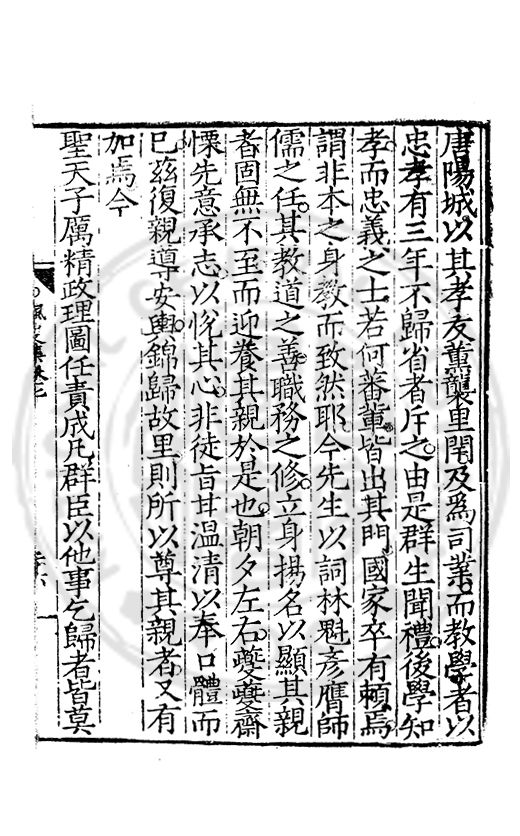 唐陽城以其孝友薰襲里閈及爲司業而教學者以
忠孝有三年不歸省者斥之由是群生聞禮後學知
孝而忠義之士若何蕃輩皆出其門國家卒有賴焉
謂非本之身教而致然耶今先生以詞林魁彥膺師
儒之任其教道之善職務之修立身揚名以顯其親
者固無不至而迎養其親於是也朝夕左右夔夔齋
慄先意承志以悅其心非徒旨甘溫清以奉口體而
已茲復親導安輿錦歸故里則所以尊其親者又有
加焉今
聖天子厲精政理圖任責成凡群臣以他事乞歸者皆莫